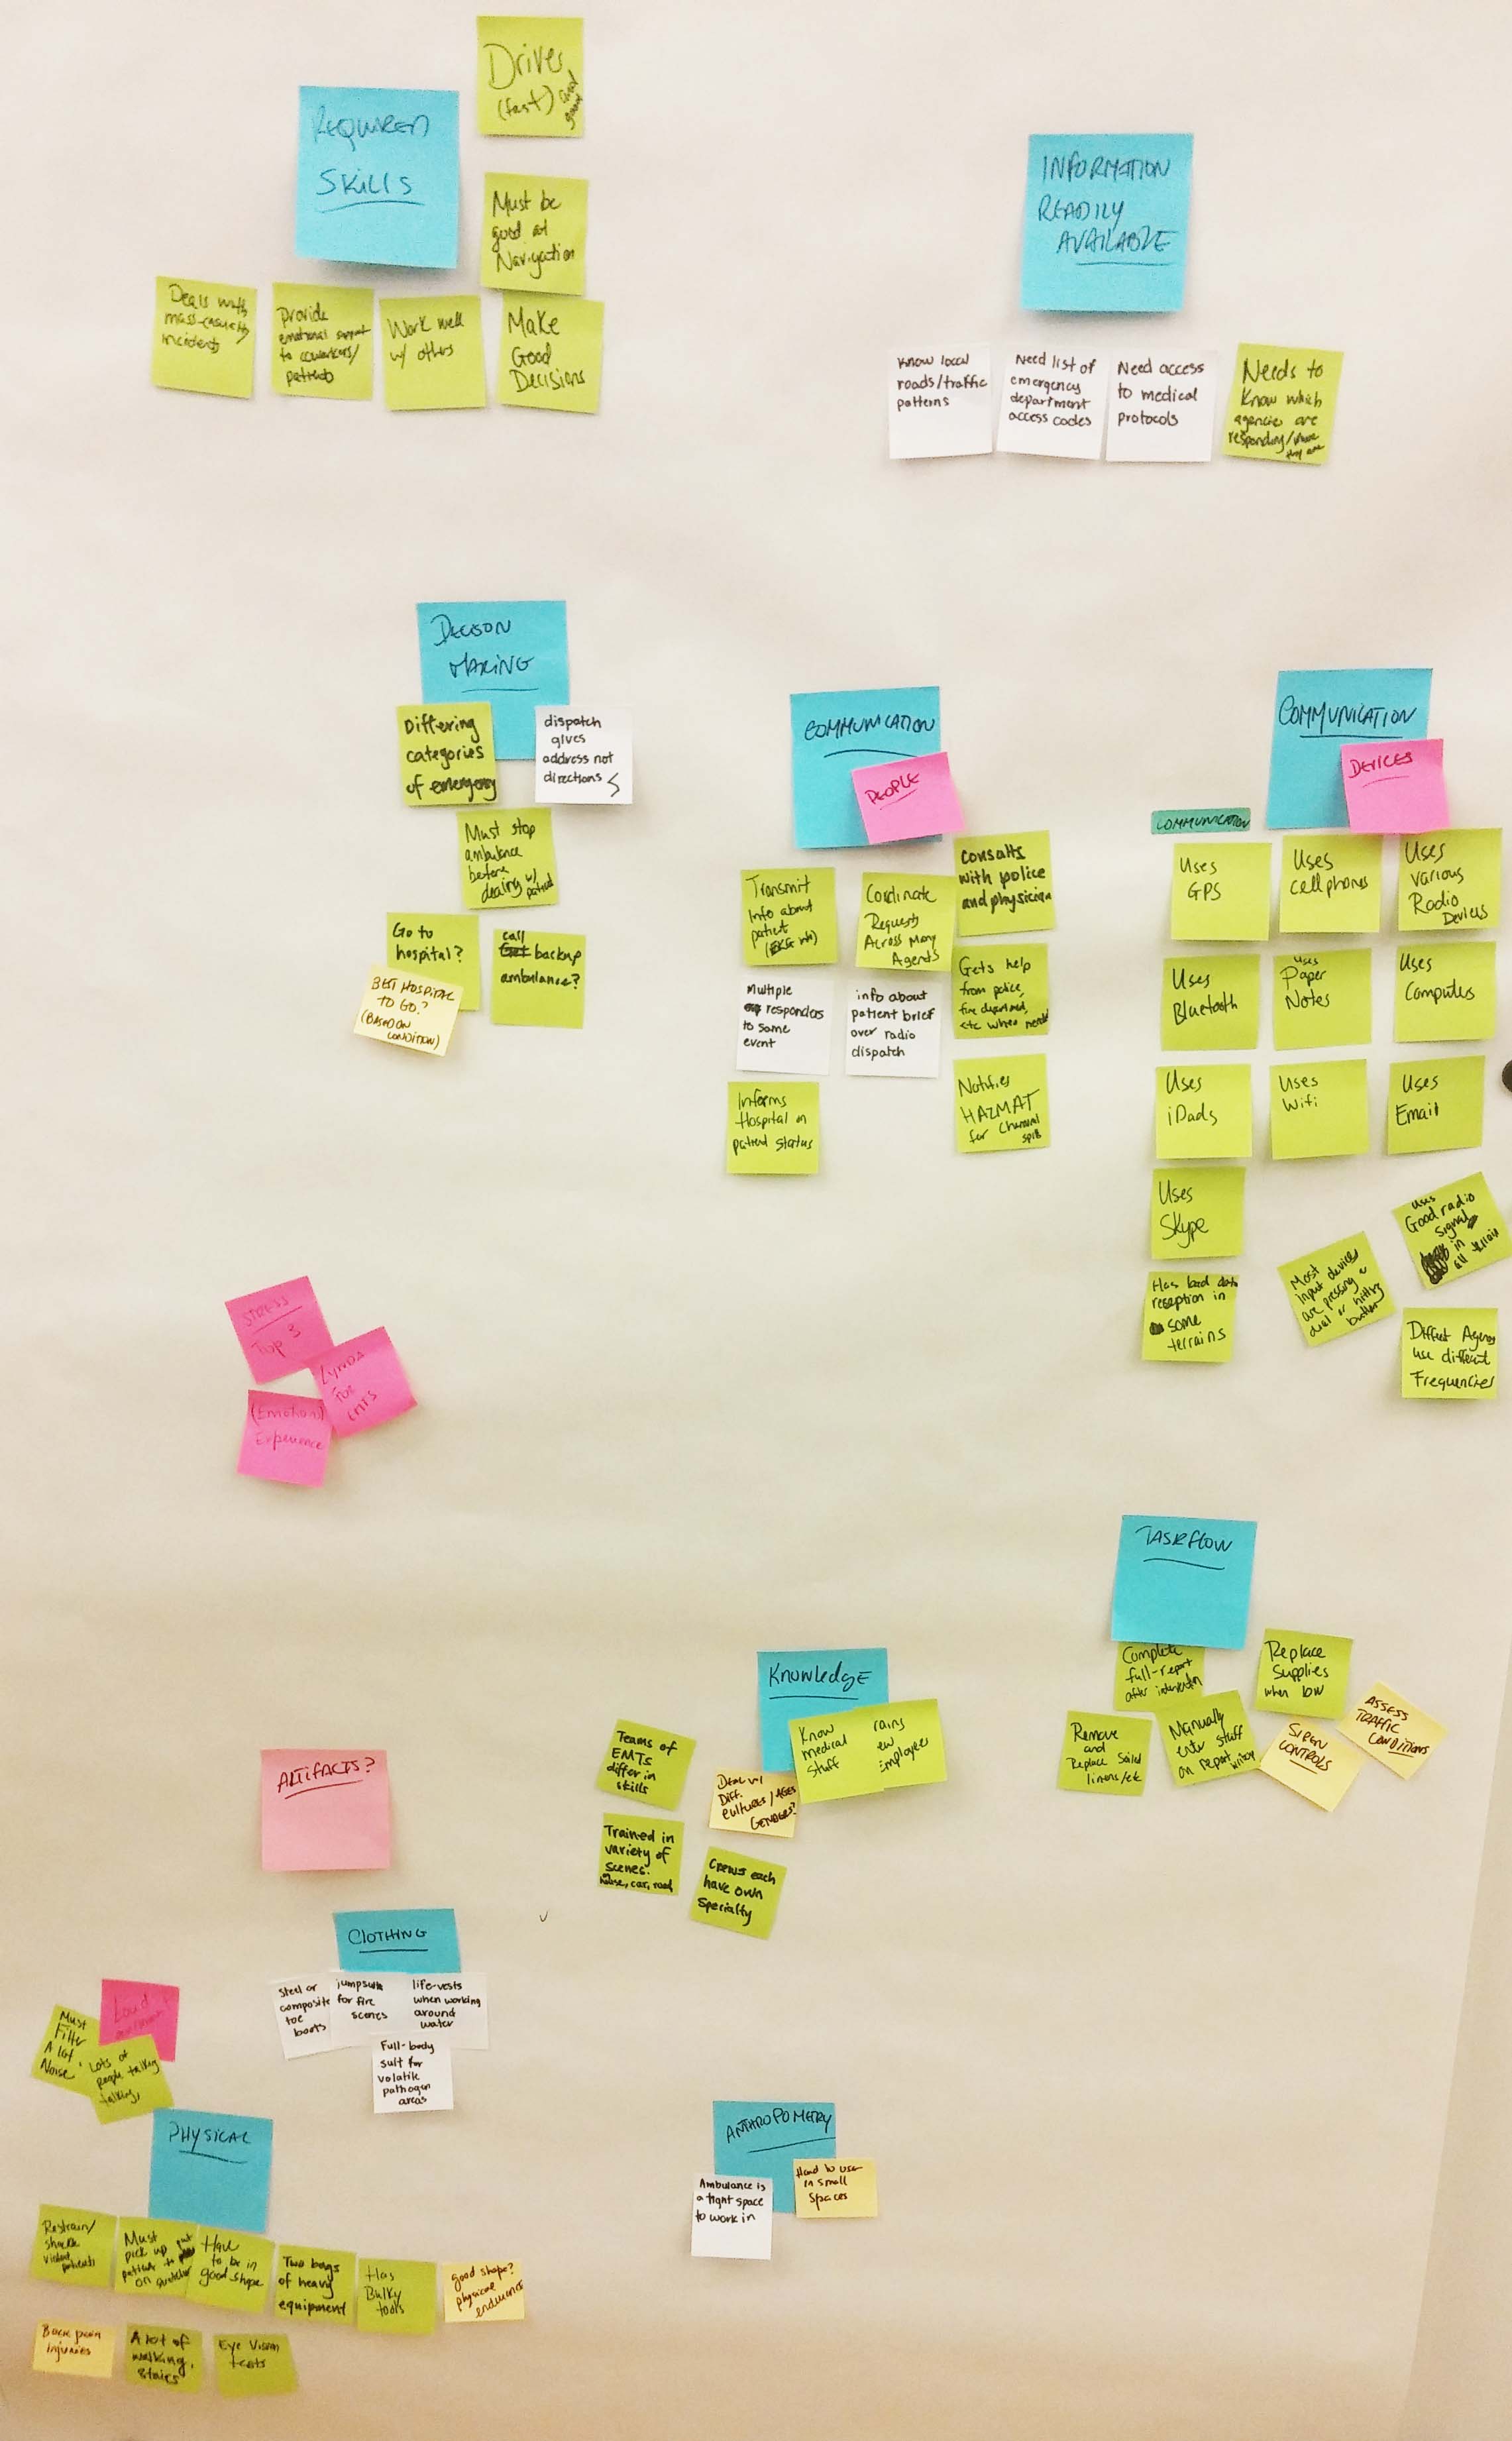 Drives
(fast)
REQUIRED
SKILLS
Must be
good at
Navigation
Deals with
mass-casualty
incidents
Provide
emotional support
to coworkers/
patients
Work well
w/ others
Make
Good
Decisions
INFORMATION
READILY
AVAILABLE
Know local
roads/traffic
patterns
Need list of
emergency
department
access codes
Need access
to medical
protocols
Needs to
Know which
agencies are
responding/where
they are
DECISON
MAKING
Differing
categories
of emergency
dispatch
gives
address not
directions
Must stop
ambulance
before
dealing w/
patient
Go to
hospital?
BEST HOSPITAL
TO GO?
(BASED ON
CONDITION)
call
backup
ambulance?
COMMUNICATION
PEOPLE
Transmit
Info about
patient
(EKG info)
Coordinate
Requests
Across Many
Agents
Consults
with police
and physician
Multiple
responders
to same
event
info about
patient brief
over radio
dispatch
Gets help
from police,
fire department,
etc when needed
Informs
Hospital on
patient status
Notifies
HAZMAT
for chemical
spill
COMMUNICATION
DEVICES
COMMUNICATION
Uses
GPS
Uses
cell phones
Uses
various
Radio
Devices
Uses
Bluetooth
uses
Paper
Notes
Uses
Computers
Uses
iPads
Uses
Wifi
Uses
Email
Uses
Skype
Has bad data
reception in
some
terrains
Most
input devices
are pressing a
dial or hitting
buttons
uses
Good radio
signal
in
all terrain
Diffrent Agency
use different
Frequencies
STRESS
Top 3
LYNDA
FOR
EMTS
(Emotions)
Experience
TASKFLOW
Complete
full-report
after intervention
Replace
Supplies
when low
Remove
and
Replace Soiled
linens/etc
Manually
enter stuff
on report
writing
SIREN
CONTROLS
ASSESS
TRAFFIC
CONDITIONS
KNOWLEDGE
Teams of
EMTs
differ in
skills
Know
medical
stuff
rains
ew
employees
DEAL W/
DIFF.
CULTURES/AGES
GENDERS?
Trained in
variety of
scenes:
house, car, road
Crews each
have own
Specialty
ARTIFACTS?
CLOTHING
Steel or
composite
toe
boots
jumpsuits
for fire
scenes
life-vests
when working
around
water
Full-body
suit for
volatile
pathogen
areas
Loud
Must
Filter
A lot
Noise
Lots of
people talking
talking
PHYSICAL
Restrain/
shackle
violent
patients
Must
pick up
patients to put
on
Have
to be in
good shape
Two bags
of heavy
equipment
Has
Bulky
tools
good shape?
physical
endurance
Back pain
injuries
A lot of
walking,
stairs
Eye Vision
tests
ANTHROPOMETRY
Ambulance is
a tight space
to work in
Hard to use
in small
Spaces